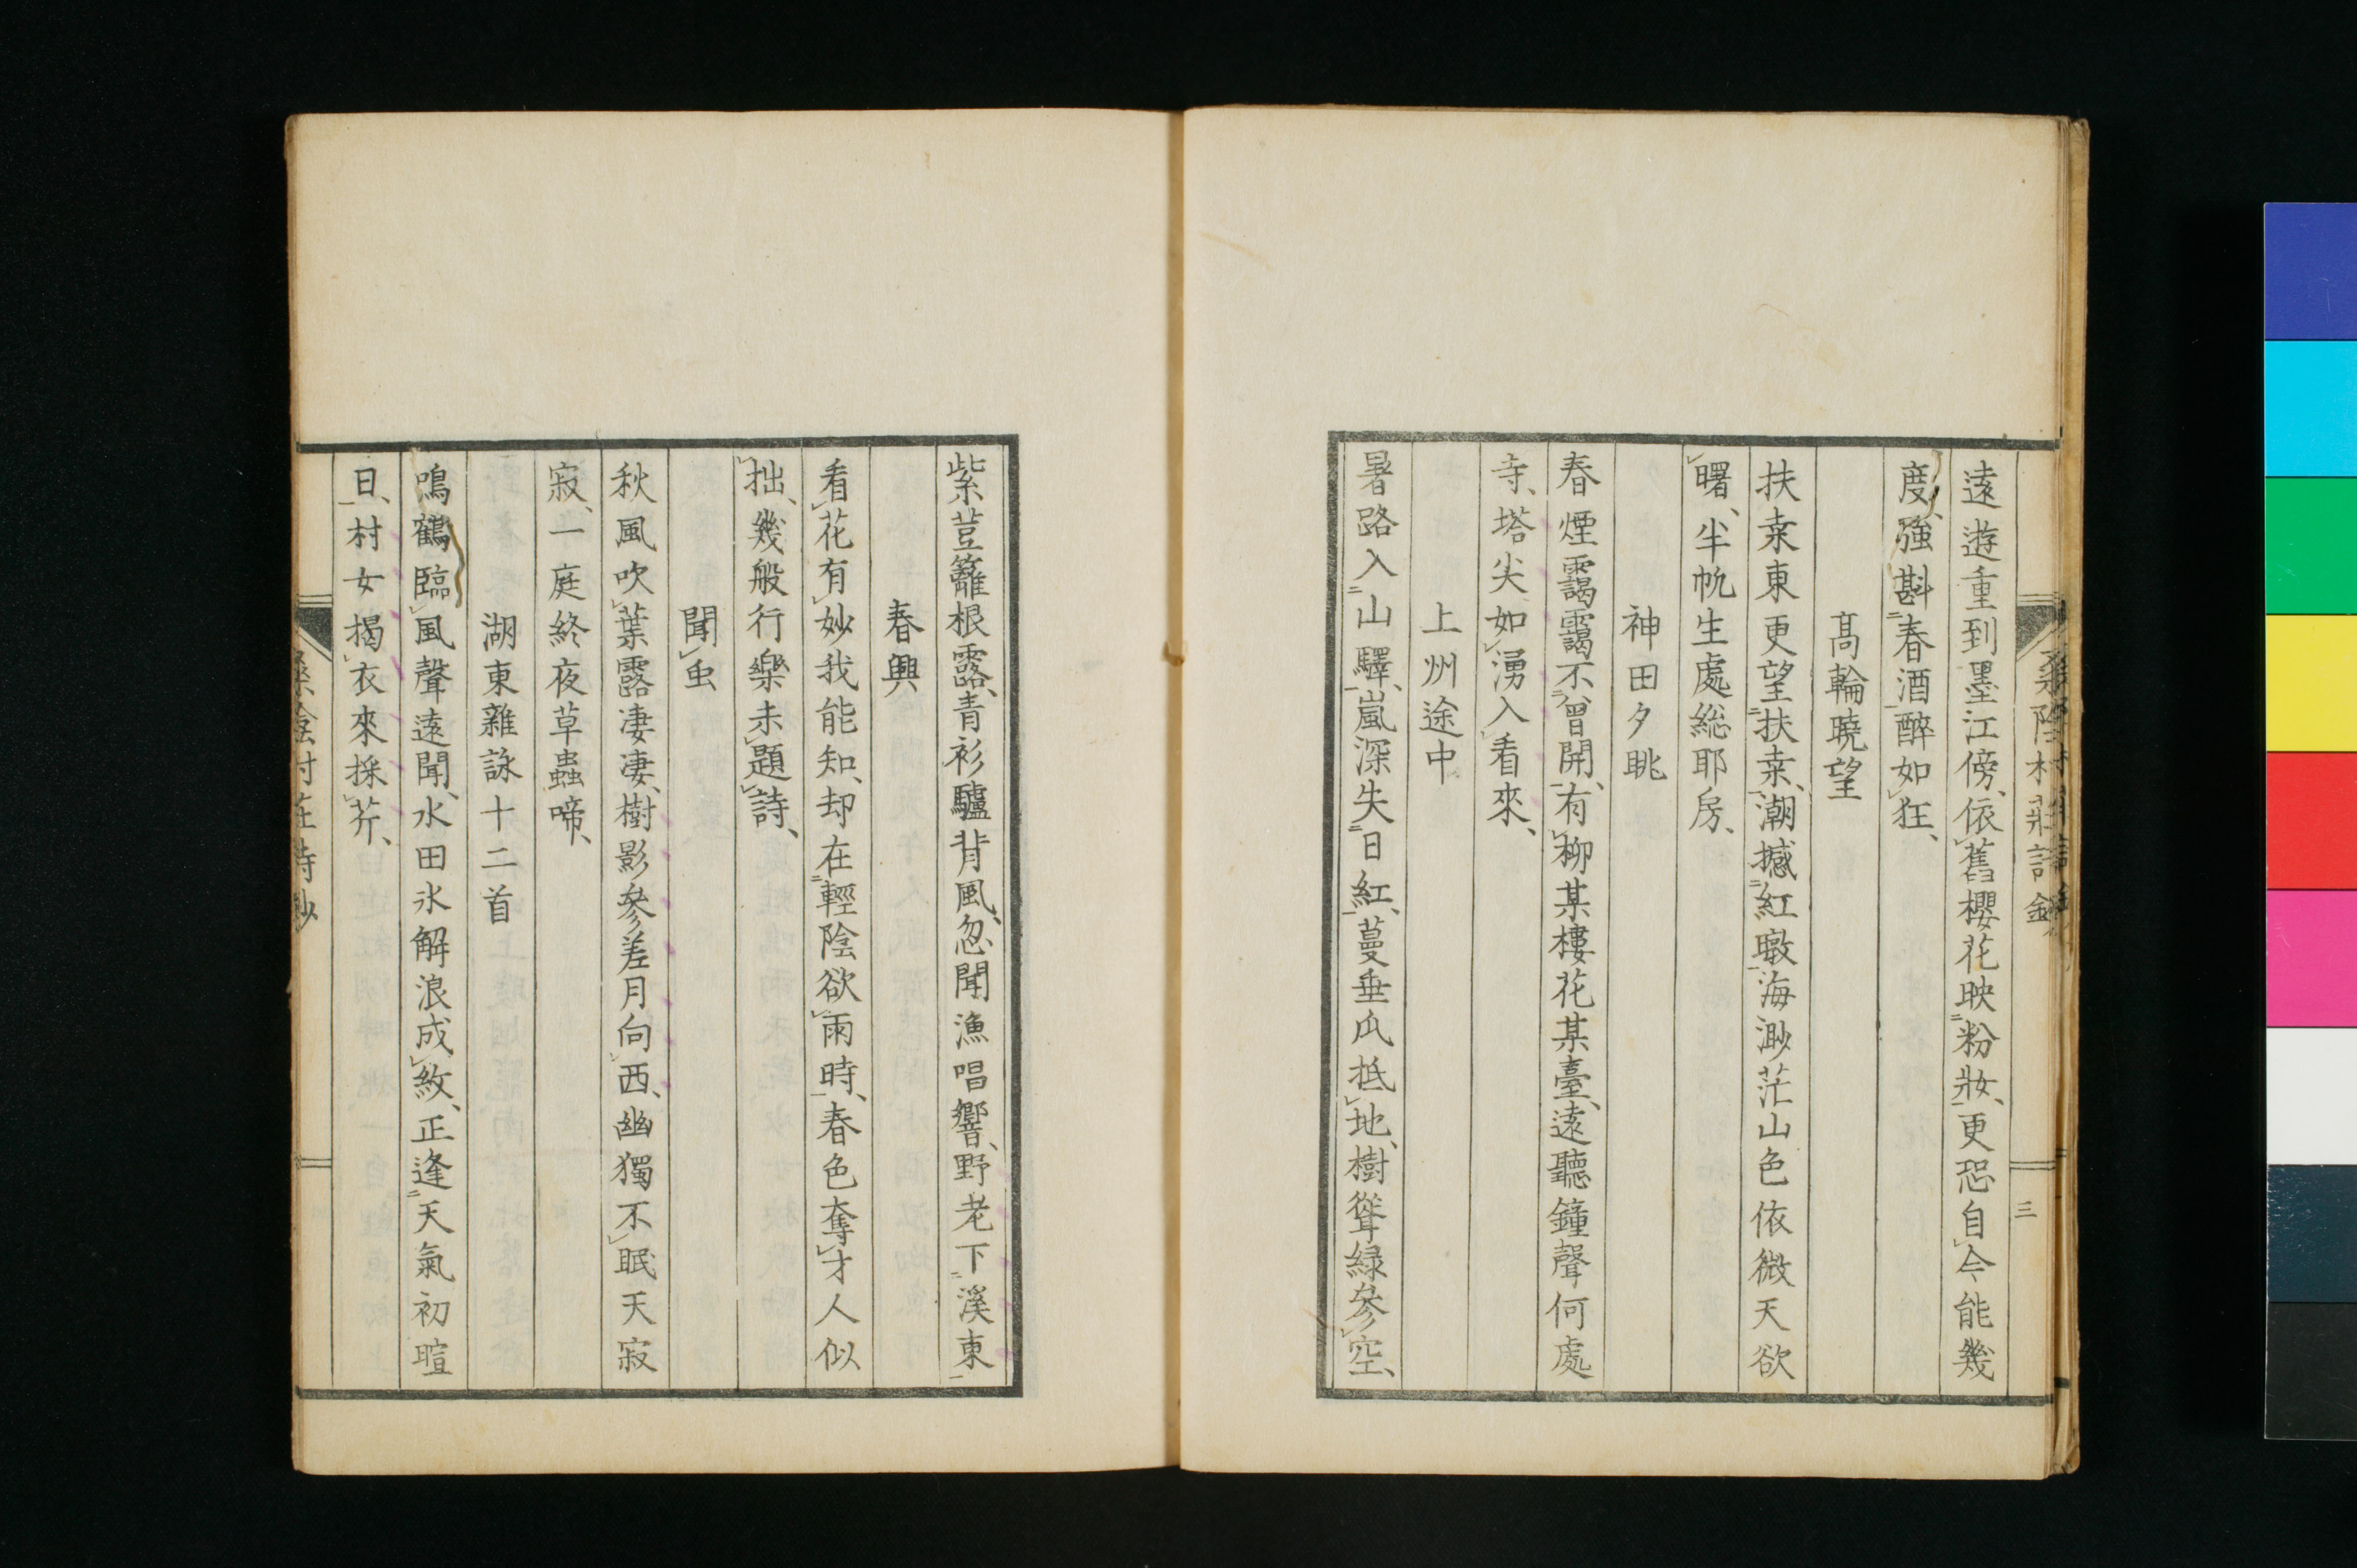 遠遊重到墨江傍、依舊櫻花映粉妝、更恐自今能幾
度、強斟春酒醉如狂、
髙輪曉望
扶桒東更望扶桒、潮撼紅暾海渺茫山色依微天欲
曙、半帆生處総耶房、
神田夕眺
春煙靄靄不曾開、有柳某樓花某臺、遠聽鐘聲何處
寺、塔尖如湧入看來、
上州途中
暑路入山驛、嵐深失日紅、蔓垂瓜抵地、樹聳緑參空、
紫荳籬根露、青衫驢背風、忽聞漁唱響、野老下溪東
春興
看花有妙我能知、却在輕陰欲雨時、春色奪才人似
拙、幾般行樂未題詩、
聞虫
秋風吹葉露凄凄、樹影參差月向西、幽獨不眠天寂
寂、一庭終夜草蟲啼、
湖東雜詠十二首
鳴鶴臨風聲遠聞、水田氷解浪成紋、正逢天氣初暄
日、村女揭衣來採芹、
三